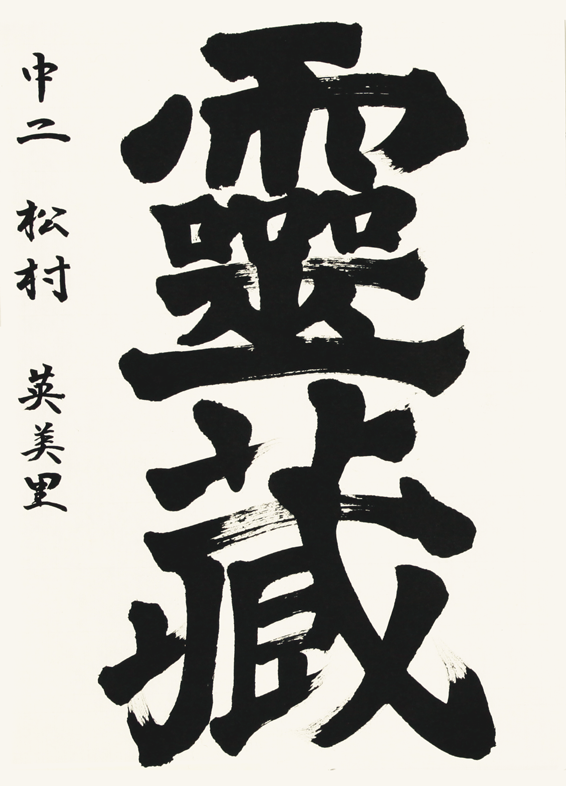 靈藏
中二 松村 英美里